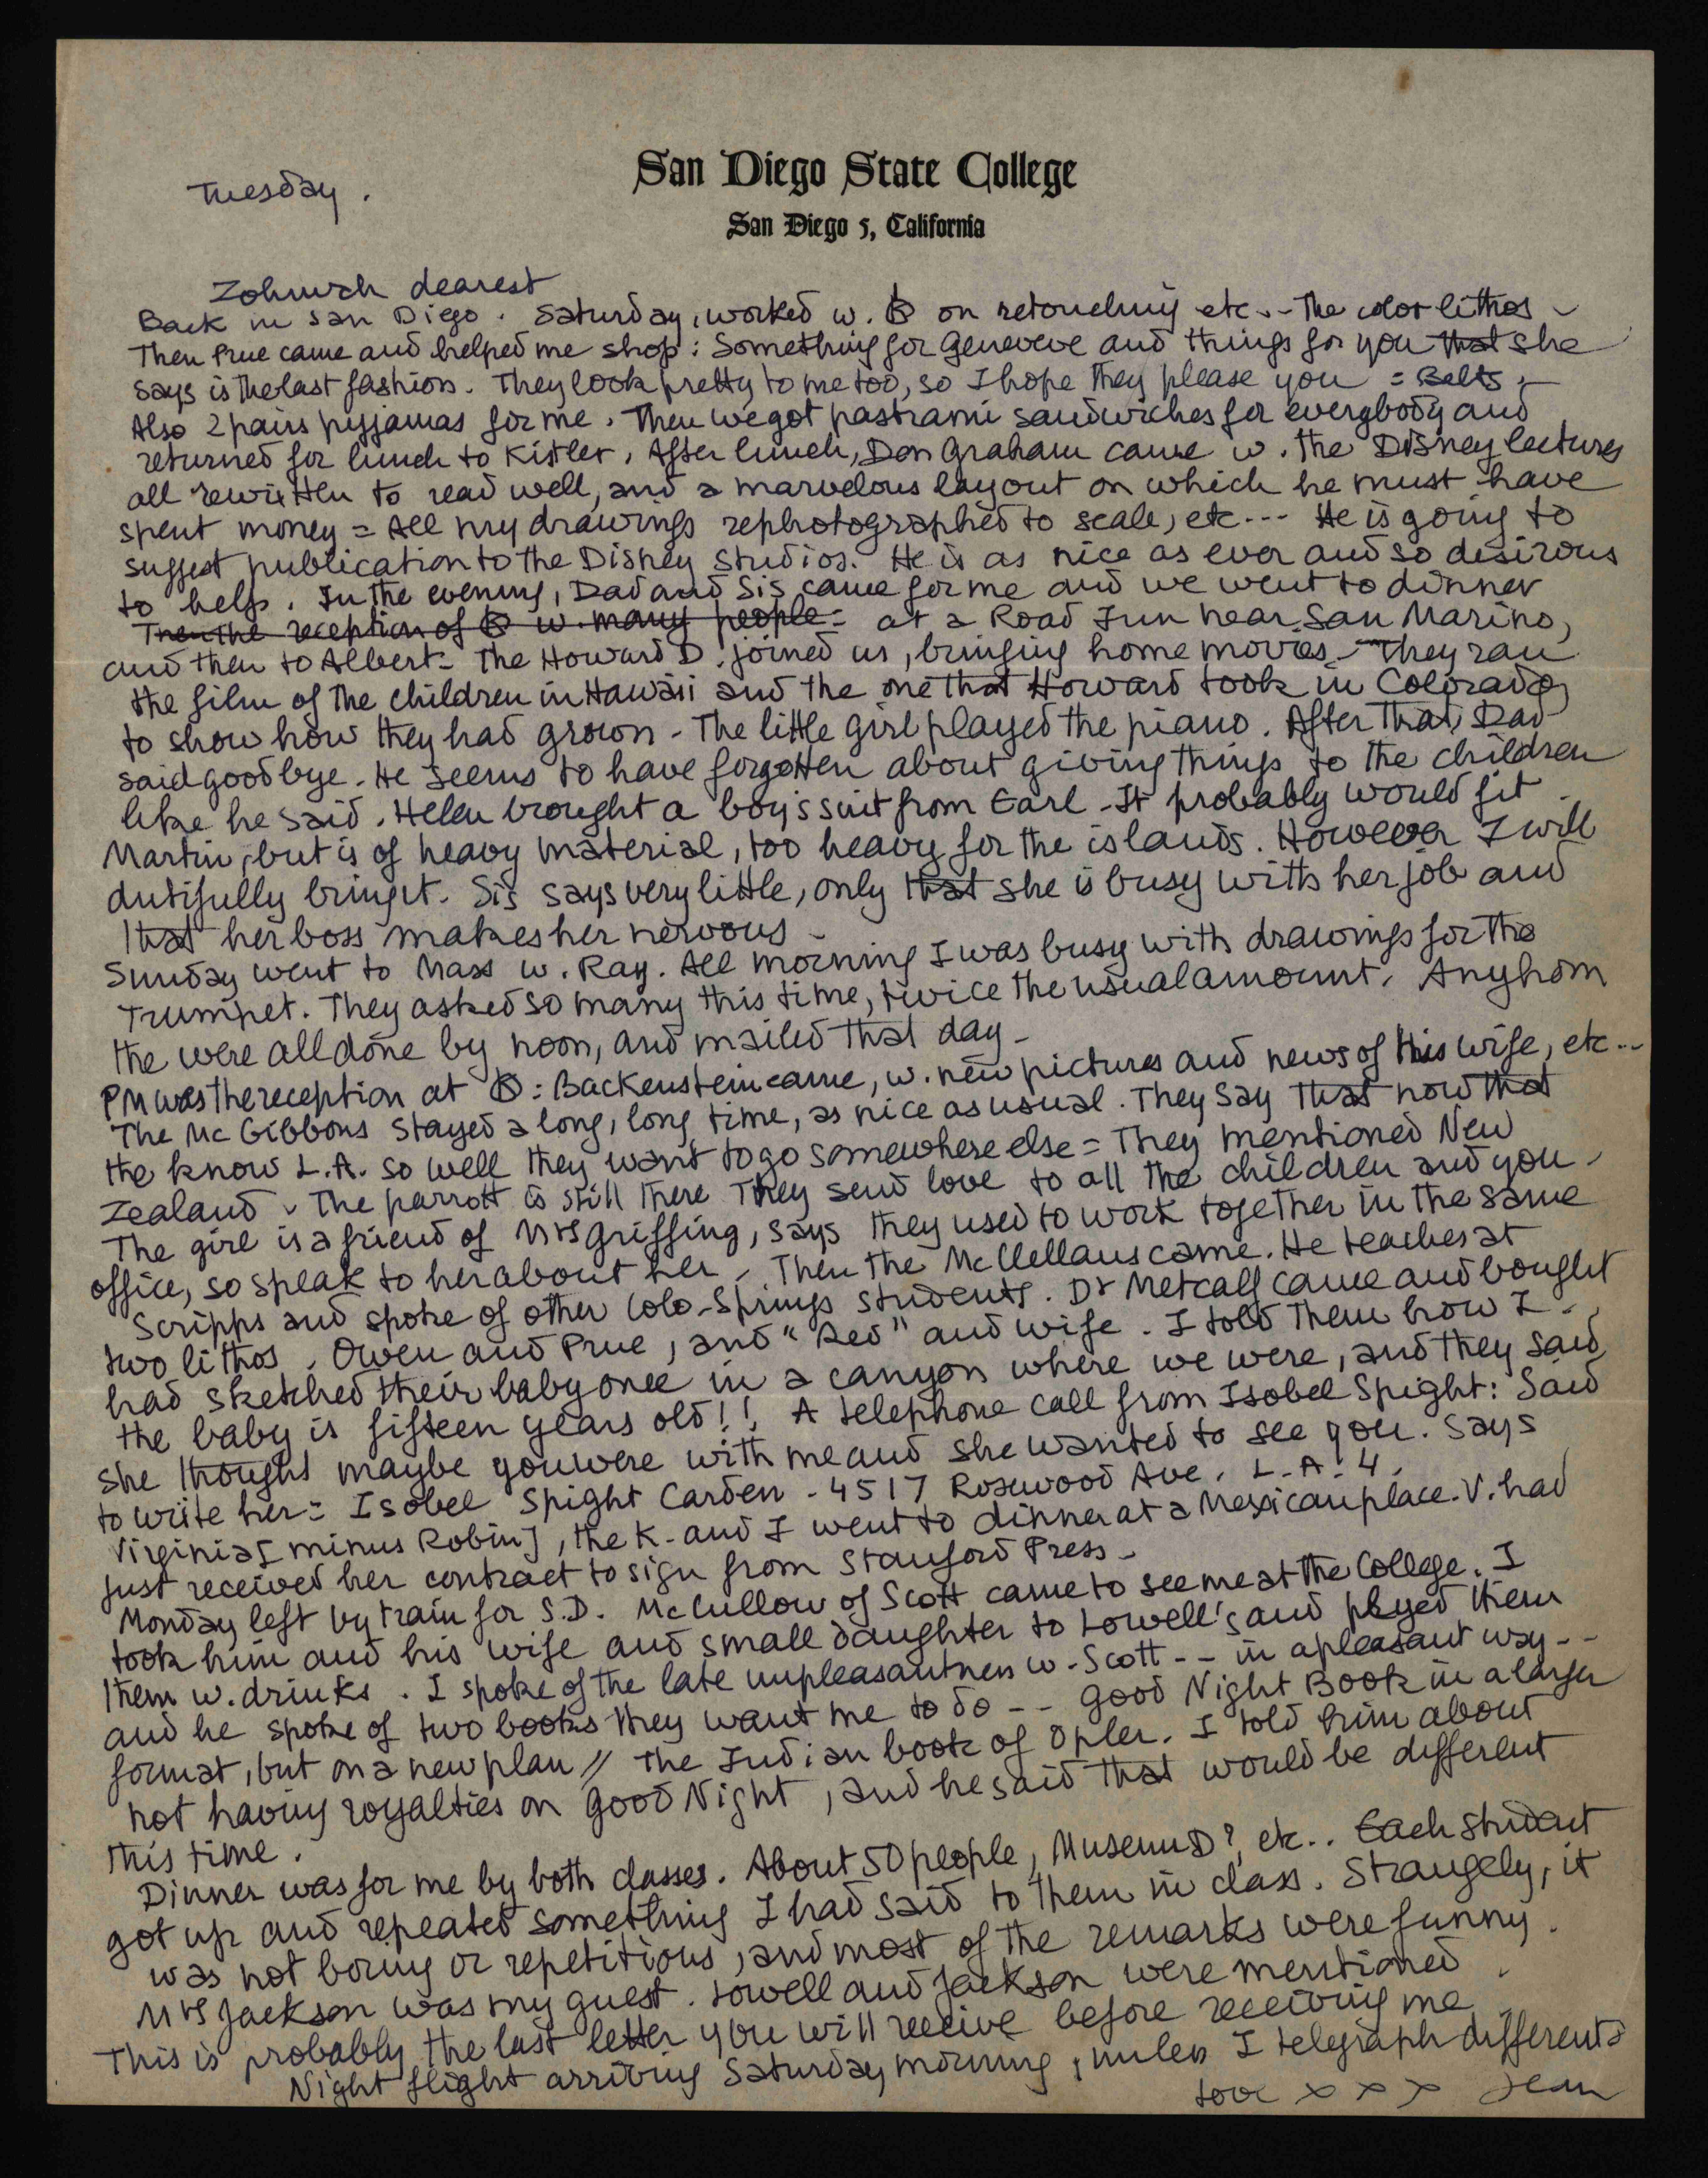 San Diego State College
San Diego 5, California
Tuesday.
Zohmah dearest
Back in San Diego. Saturday, worked w. K on retouching etc.. - The color lithos -
Then Prue came and helped me shop: Something for Genevieve and things for you that she
says is the last fashion. They look pretty to me too, so I hope they please you = Belts -
Also 2 pairs pyjamas for me. Then we got pastrami sandwiches for everybody and
returned for lunch to Kistler. After lunch, Don Graham came w. the Disney lectures
all rewritten to read well, and a marvelous layout on which he must have
spent money = All my drawings rephotographed to scale, etc... He is going to
suggest publication to the Disney studios. He is as nice as ever and so desirous
to help. In the evening, Dad and Sis came for me and we went to dinner
Then the reception of K w. many people = at a Road Inn near San Marino,
and then to Albert. The Howard D. joined us, bringing home movies. They ran
the film of the children in Hawaii and the one that Howard took in Colorado,
to show how they had grown - The little girl played the piano. After that, Dad
said goodbye. He seems to have forgotten about giving things to the children
like he said. Helen brought a boy's suit from Earl - It probably would fit
Martin, but is of heavy material, too heavy for the islands. However I will
dutifully bring it. Sis says very little, only that she is busy with her job and
that her boss makes her nervous -
Sunday went to Mass w. Ray. All morning I was busy with drawings for the
Trumpet. They asked so many this time, twice the usual amount. Anyhom
the were all done by noon, and mailed that day -
PM was the reception at K: Backenstein came, w. new pictures and news of his wife, etc...
The McGibbons stayed a long, long time, as nice as usual. They say that now that
the know L.A. so well they want to go somewhere else = They mentioned New
Zealand. The parrott is still there They send love to all the children and you -
The girl is a friend of Mrs Griffing, says they used to work together in the same
office, so speak to her about her - Then the McClellans came. He teaches at
Scripps and spoke of other Colo-Springs students. Dr Metcalf came and bought
two lithos. Owen and Prue, and "Red" and wife. I told them how I
had sketched their baby once in a canyon where we were, and they said
the baby is fifteen years old!! A telephone call from Isobel Spight: Said
she thought maybe you were with me and she wanted to see you. Says
to write her = Isobel Spight Carden - 4517 Rosewood Ave. L.A. 4.
Virginia [minus Robin], the K- and I went to dinner at a Mexican place. V. had
just received her contract to sign from Stanford Press -
Monday left by train for S.D. McCullow of Scott came to see me at the College. I
took him and his wife and small daughter to Lowell's and plyed them
them w. drinks. I spoke of the late unpleasantness w. Scott -- in a pleasant way --
and he spoke of two books they want me to do -- Good Night Book in a larger
format, but on a new plan // The Indian book of Opler. I told him about
not having royalties on Good Night, and he said that would be different
this time.
Dinner was for me by both classes. About 50 people, Museum Dr, etc.. Each student
got up and repeated something I had said to them in class. Strangely, it
was not boring or repetitious, and most of the remarks were funny.
Mrs Jackson was my guest. Lowell and Jackson were mentioned.
This is probably the last letter you will receive before receiving me.
Night flight arriving Saturday morning, unless I telegraph different
Love x x x Jean